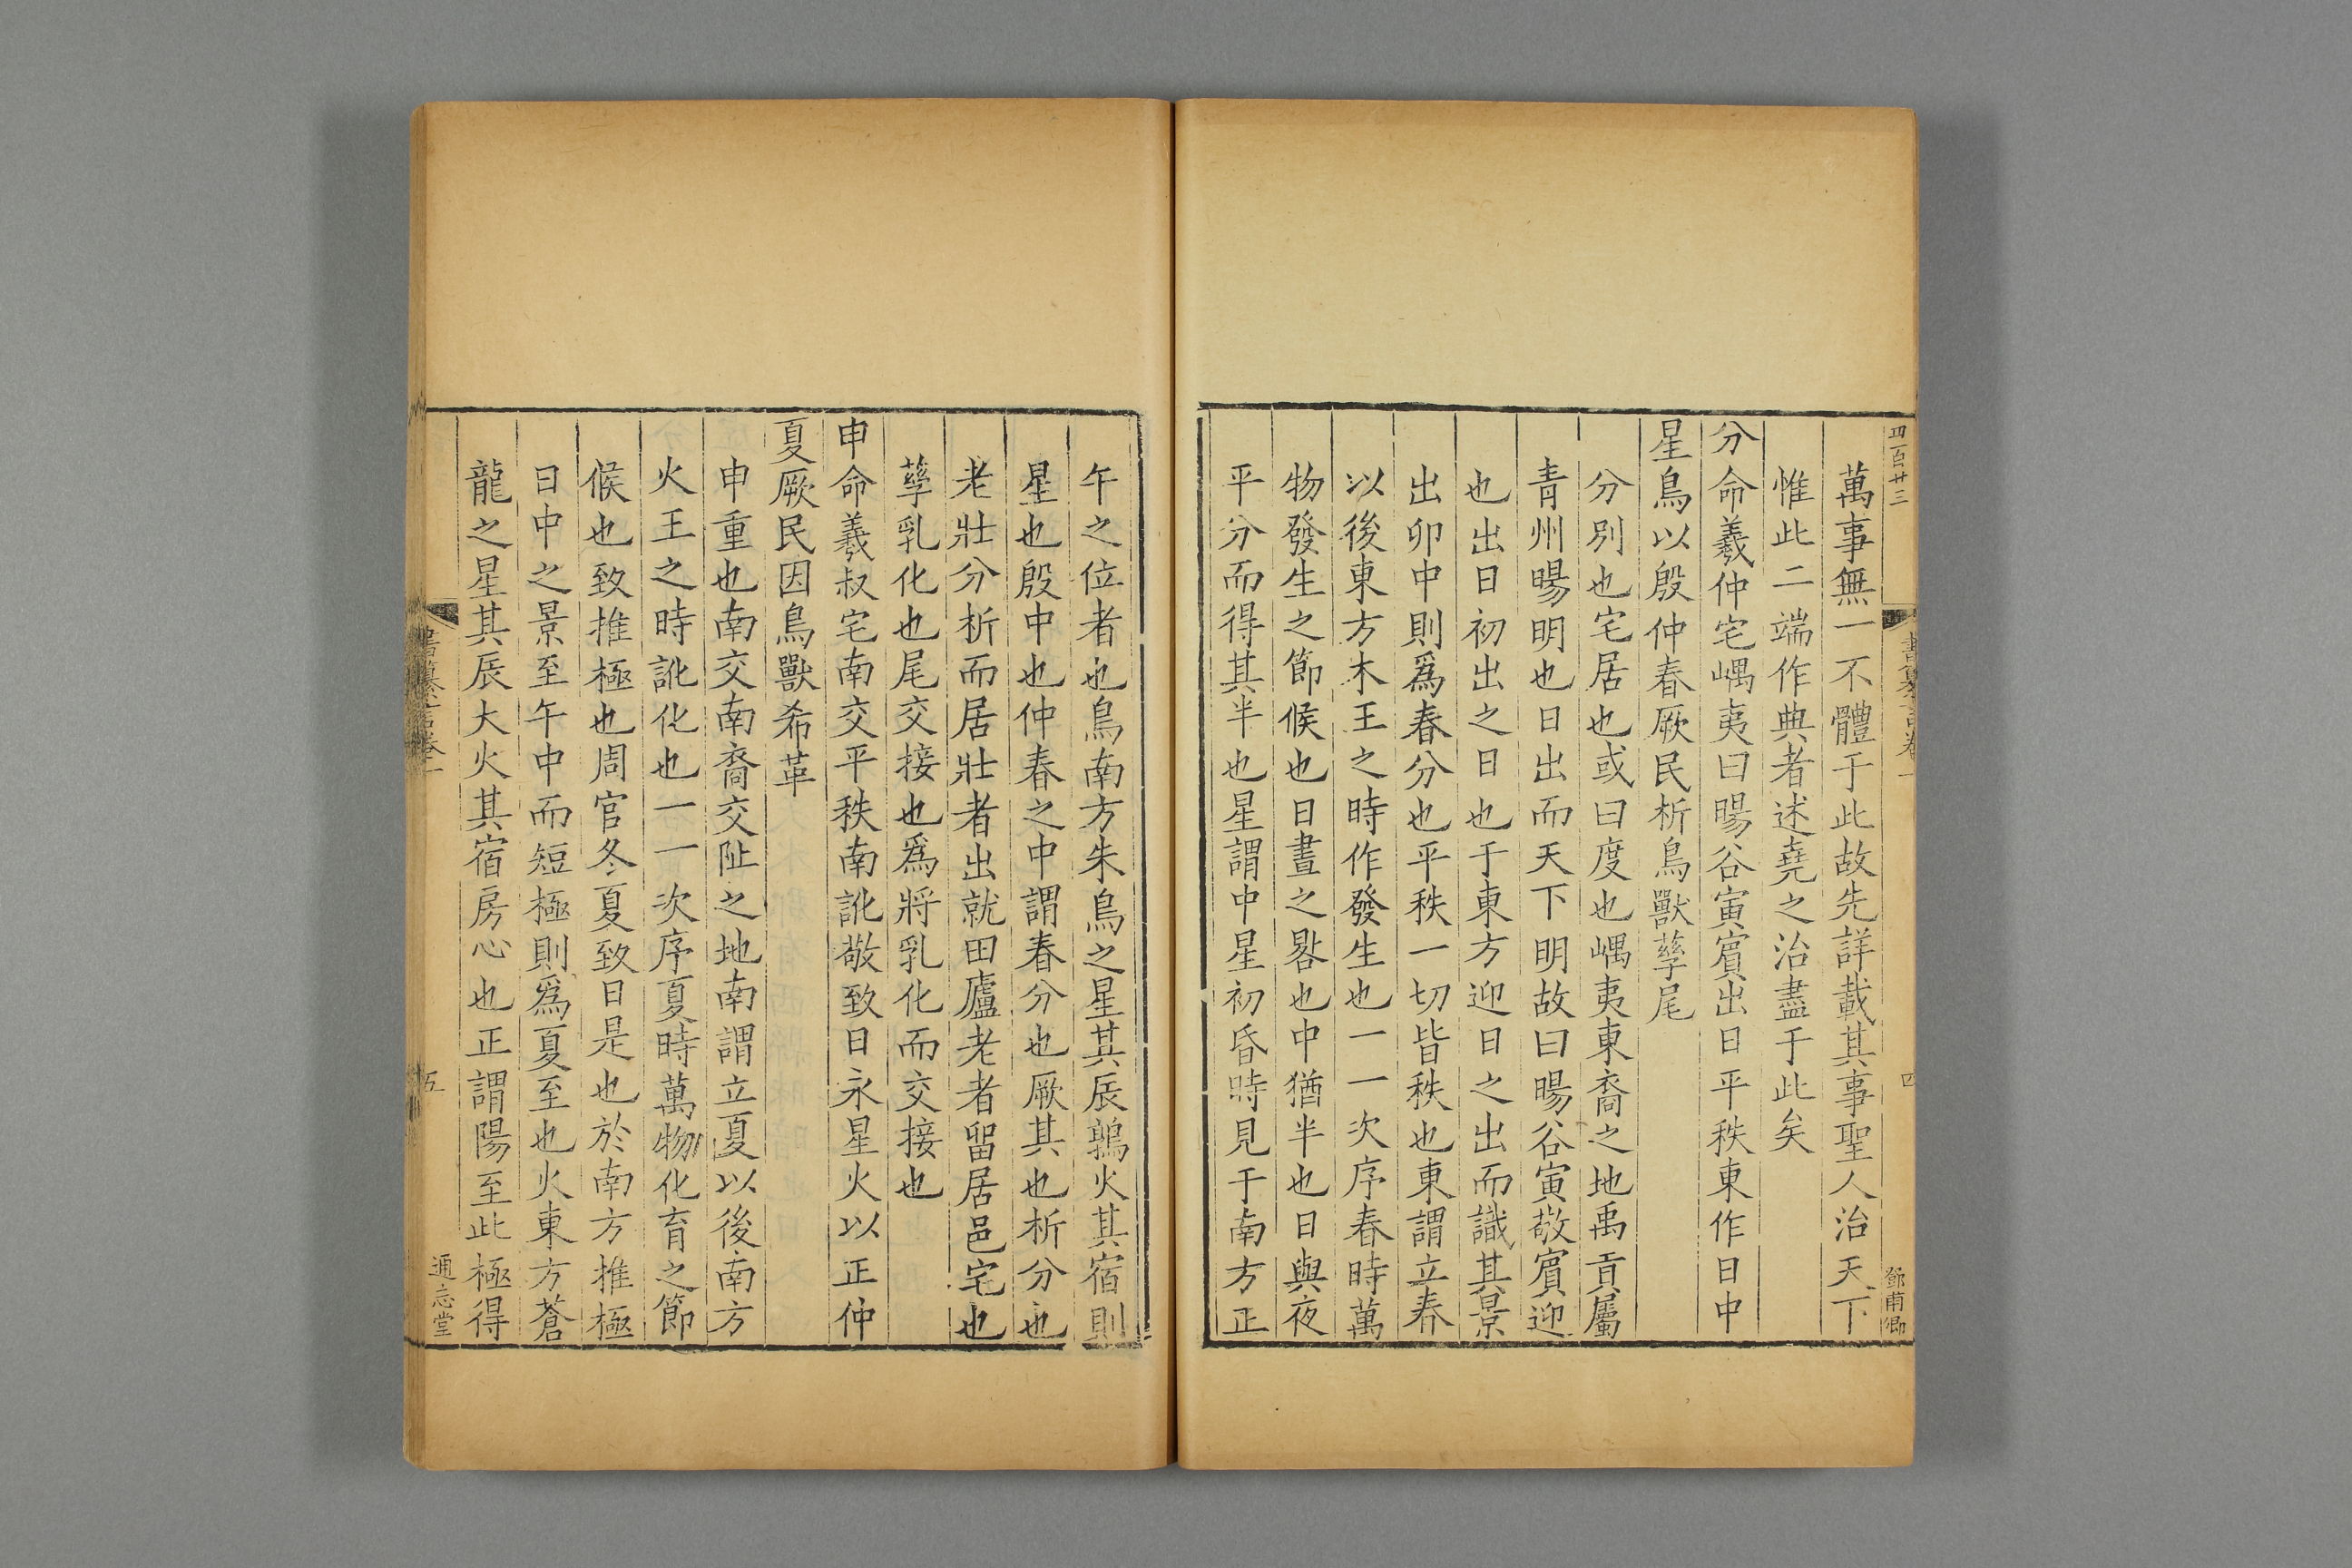 四百廿三
萬事無一不體于此故先詳載其事聖人治天下
惟此二端作典者述堯之治盡于此矣
分命羲仲宅嵎夷曰暘谷寅賔出日平秩東作日中
星鳥以殷仲春厥民析鳥獸孳尾
分別也宅居也或曰度也嵎夷東裔之地禹貢屬
青州暘明也日出而天下明故曰暘谷寅敬賔迎
也出日初出之日也于東方迎日之出而識其景
出卯中則爲春分也平秩一切皆秩也東謂立春
以後東方木王之時作發生也一一次序春時萬
物發生之節候也日晝之晷也中猶半也日與夜
平分而得其半也星謂中星初昏時見于南方正
書纂言卷一
四
午之位者也鳥南方朱鳥之星其辰鶉火其宿則
星也殷中也仲春之中謂春分也厥其也析分也
老壯分析而居壯者出就田廬老者留居邑宅也
孳乳化也尾交接也爲將乳化而交接也
申命羲叔宅南交平秩南訛敬致日永星火以正仲
夏厥民因鳥獸希革
申重也南交南裔交阯之地南謂立夏以後南方
火王之時訛化也一一次序夏時萬物化育之節
候也致推極也周官冬夏致日是也於南方推極
日中之景至午中而短極則爲夏至也火東方蒼
龍之星其辰大火其宿房心也正謂陽至此極得
書纂言卷一
五
通志堂